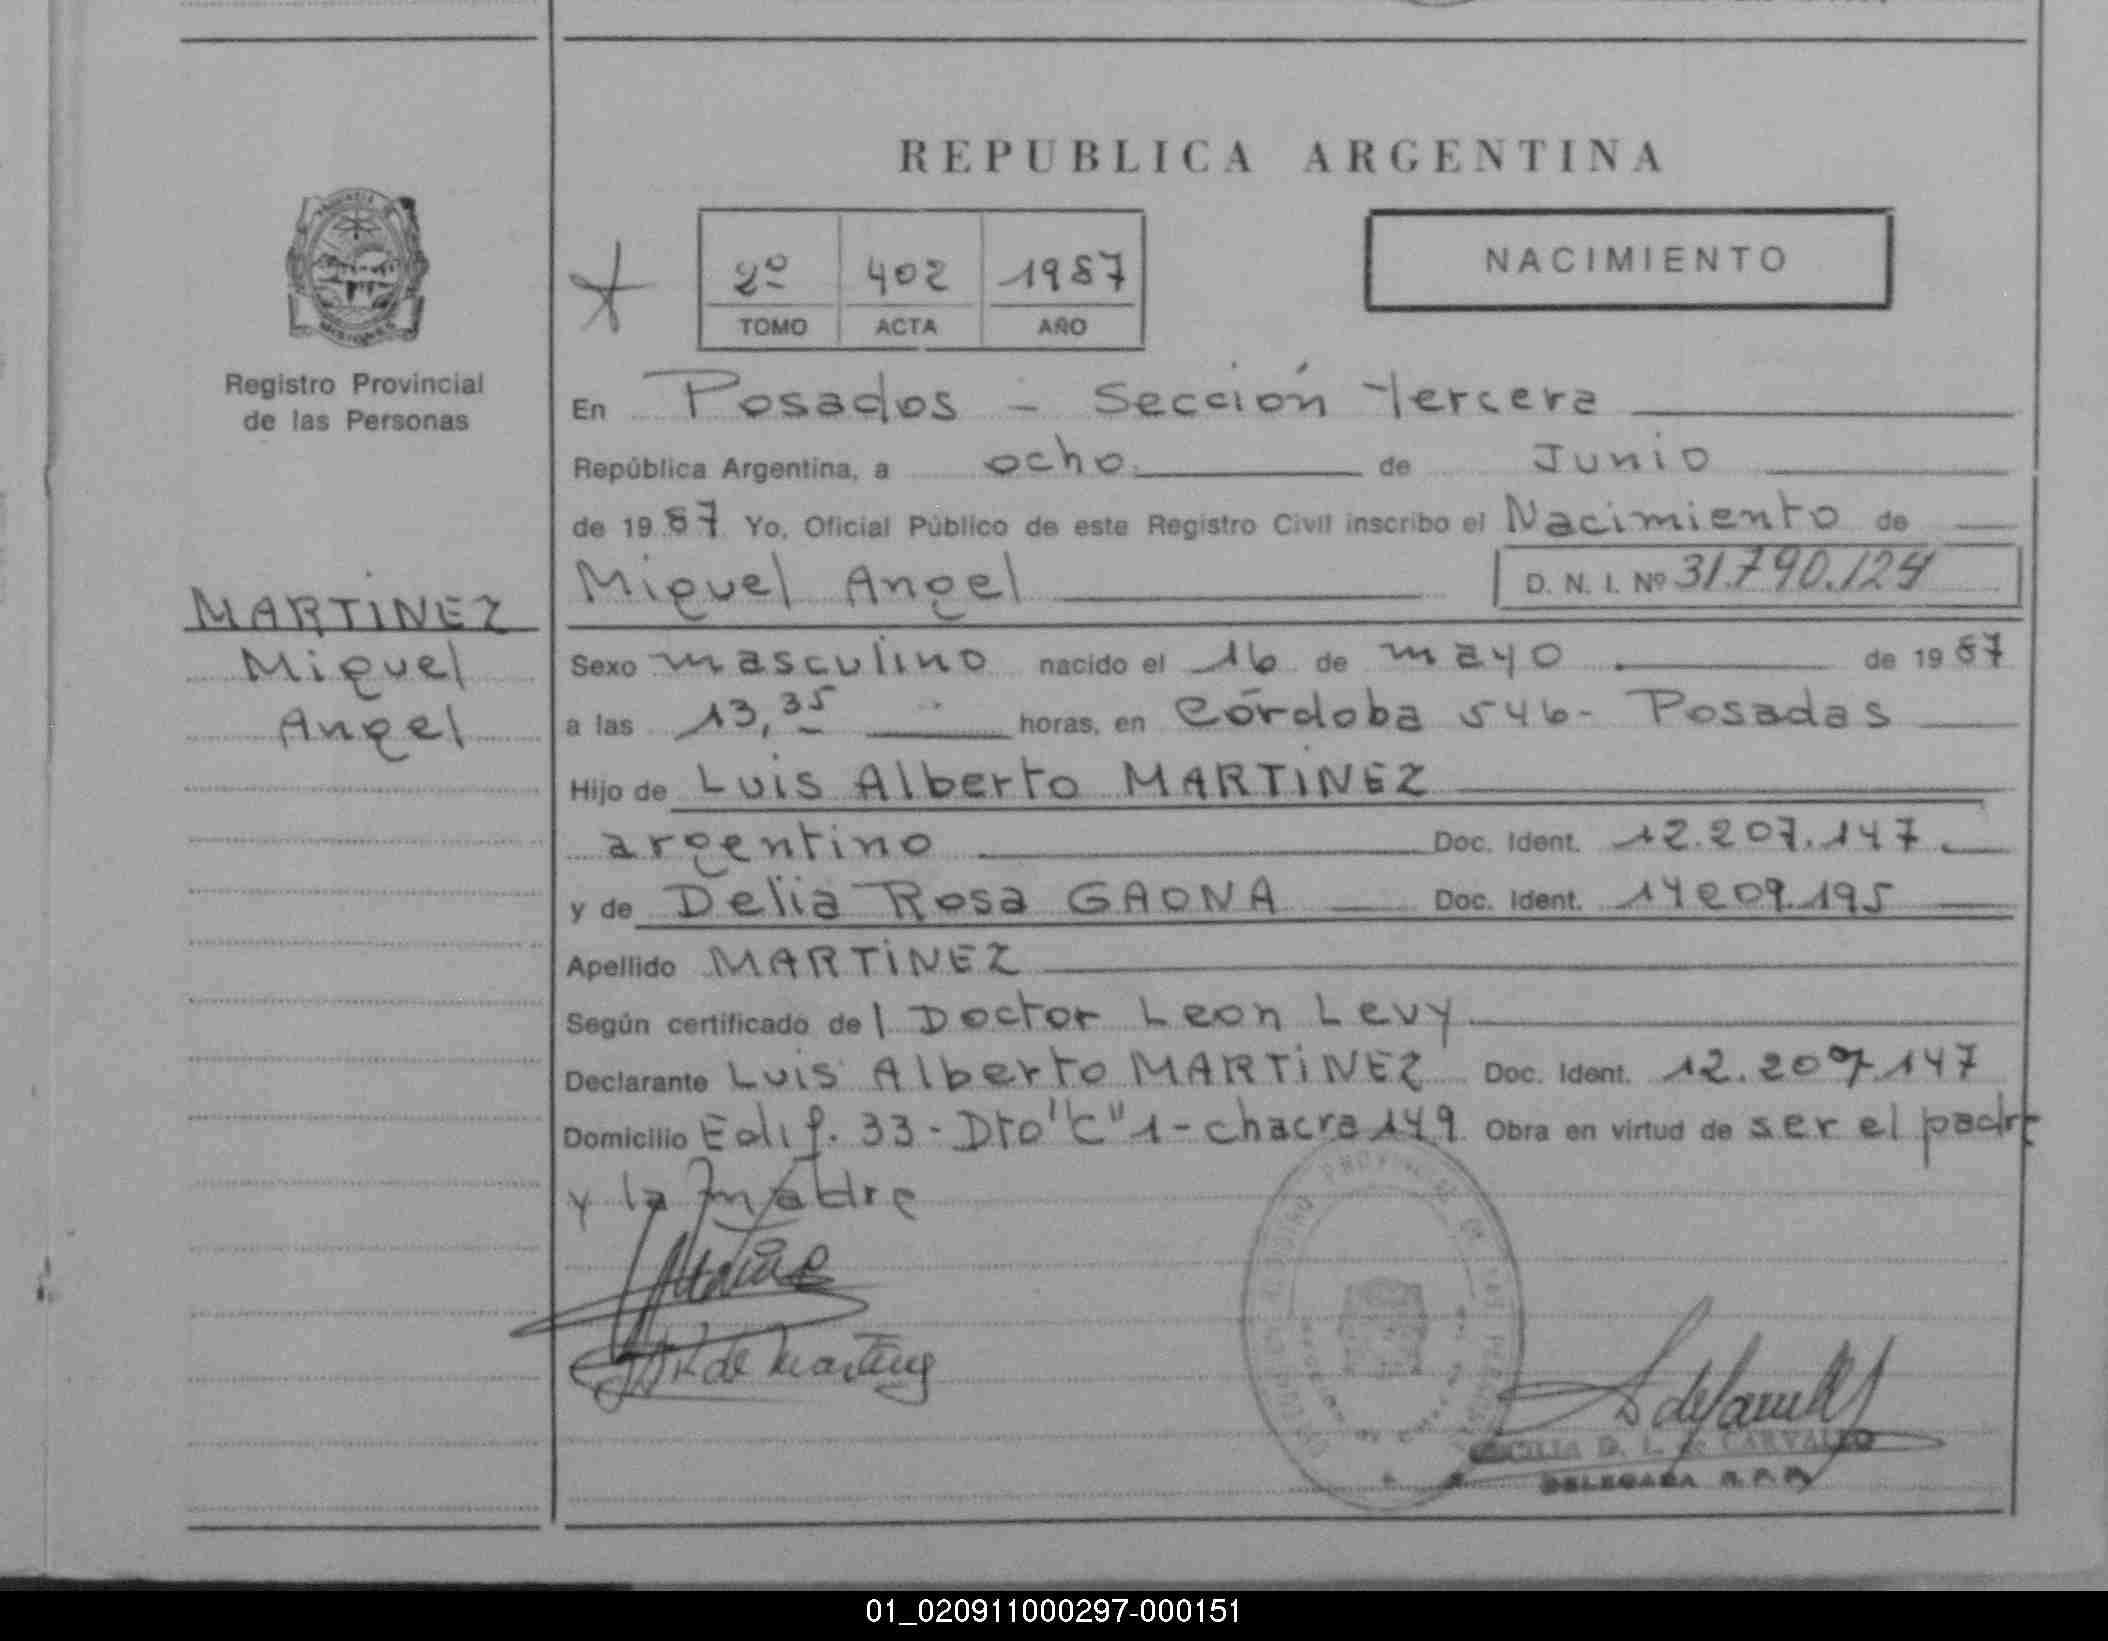 REPUBLICA ARGENTINA
2º 402 1987
TOMO ACTA AÑO
NACIMIENTO
Registro Provincial
de las Personas
MARTINEZ
Miguel
Angel
En Posadas - Sección Tercera
República Argentina, a ocho de Junio
de 1987 Yo, Oficial Público de este Registro Civil inscribo el Nacimiento de
Miguel Angel D. N. I. Nº 31.790.124
Sexo masculino nacido el 16 de mayo de 1987
a las 13,35 horas, en Córdoba 546- Posadas
Hijo de Luis Alberto MARTINEZ
argentino Doc. Ident. 12.207.147
y de Delia Rosa GAONA Doc. Ident. 14209.195
Apellido MARTINEZ
Según certificado del Doctor Leon Levy
Declarante Luis Alberto MARTINEZ Doc. Ident. 12.207.147
Domicilio Edif. 33 - Dto "C" 1 - chacra 149 Obra en virtud de ser el padre
y la madre
D. L. de CARVALLO
DELEGADA R.P.P.
01_020911000297-000151